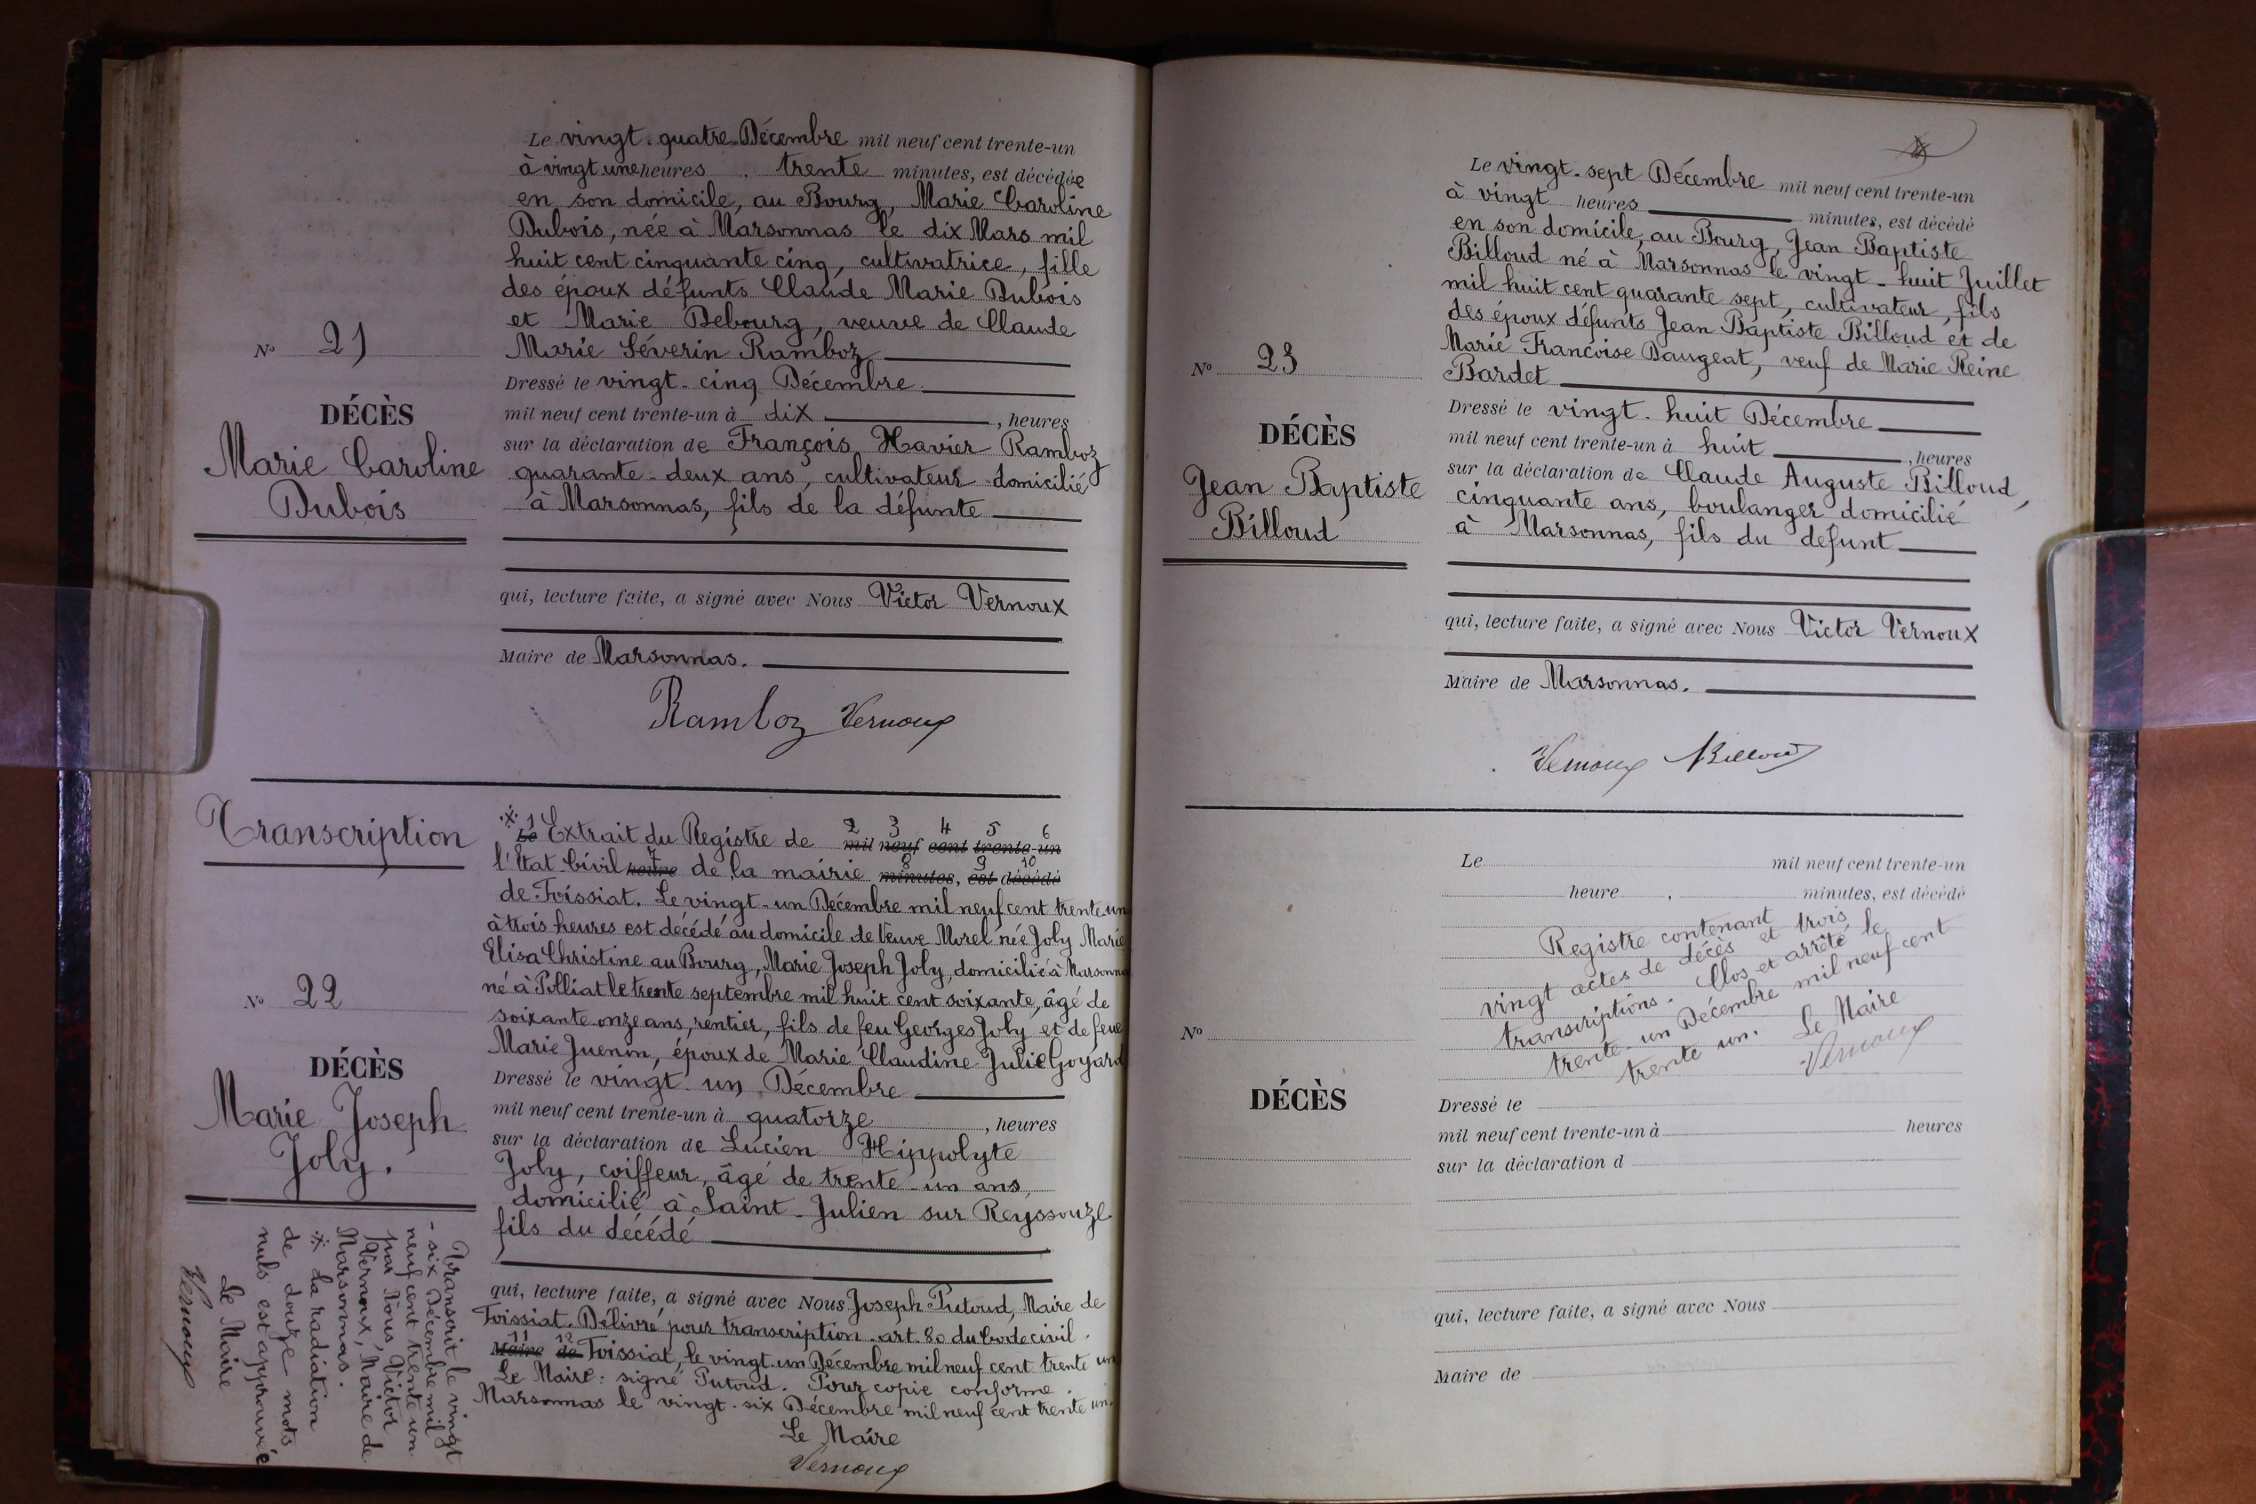 Le vingt-quatre Décembre mil neuf cent trente-un
à vingt une heures trente minutes, est décédée
en son domicile, au Bourg, Marie Caroline
Dubois, née à Marsonnas le dix Mars mil
huit cent cinquante cinq, cultivatrice, fille
des époux défunts Claude Marie Dubois
et Marie Debourg, veuve de Claude
Marie Séverin Ramboz
N° 21
DÉCÈS
Marie Caroline
Dubois
Dressé le vingt-cinq Décembre
mil neuf cent trente-un à dix, heures
sur la déclaration de François Xavier Ramboz
quarante-deux ans, cultivateur domicilié
à Marsonnas, fils de la défunte
qui, lecture faite, a signé avec Nous Victor Vernoux
Maire de Marsonnas.
Ramboz Vernoux
Transcription
N° 22
DÉCÈS
Marie Joseph
Joly.
※ 1 2 3 4 5 6
Le Extrait du Registre de mil neuf cent trente-un
7 8 9 10
l'Etat Civil heure de la mairie minutes, est décédé
de Foissiat. Le vingt-un Décembre mil neuf cent trente-un
à trois heures est décédé au domicile de Veuve Morel née Joly Marie
Elisa Christine au Bourg, Marie Joseph Joly, domicilié à Marsonnas
né à Polliat le trente septembre mil huit cent soixante, âgé de
soixante-onze ans, rentier, fils de feu Georges Joly et de feue
Marie Juenon, époux de Marie Claudine Julie Goyard
Dressé le vingt-un Décembre
mil neuf cent trente-un à quatorze, heures
sur la déclaration de Lucien Hippolyte
Joly, coiffeur, âgé de trente-un ans,
domicilié à Saint-Julien sur Reyssouze
fils du décédé
qui, lecture faite, a signé avec Nous Joseph Putoud, Maire de
Foissiat. Délivré pour transcription. art. 80 du Code civil.
11 12
Maire de Foissiat, le vingt-un Décembre mil neuf cent trente un
Le Maire: signé Putoud. Pour copie conforme.
Marsonnas le vingt-six Décembre mil neuf cent trente un.
Le Maire
Vernoux
Transcrit le vingt
-six Décembre mil
neuf cent trente un
par Nous, Victor
Vernoux, Maire de
Marsonnas.
※ La radiation
de douze mots
nuls est approuvée
Le Maire
Vernoux
Le vingt-sept Décembre mil neuf cent trente-un
à vingt heures minutes, est décédé
en son domicile, au Bourg, Jean Baptiste
Billoud né à Marsonnas le vingt-huit Juillet
mil huit cent quarante sept, cultivateur, fils
des époux défunts Jean Baptiste Billoud et de
Marie Françoise Daugeat, veuf de Marie Reine
Bardet
N° 23
DÉCÈS
Jean Baptiste
Billoud
Dressé le vingt-huit Décembre
mil neuf cent trente-un à huit, heures
sur la déclaration de Claude Auguste Billoud,
cinquante ans, boulanger domicilié
à Marsonnas, fils du défunt
qui, lecture faite, a signé avec Nous Victor Vernoux
Maire de Marsonnas.
Vernoux Billoud
Le mil neuf cent trente-un
heure, minutes, est décédé
Registre contenant
vingt actes de décès et trois
transcriptions. Clos et arrêté le
trente-un Décembre mil neuf cent
trente un. Le Maire
Vernoux
N°
DÉCÈS
Dressé le
mil neuf cent trente-un à heures
sur la déclaration d
qui, lecture faite, a signé avec Nous
Maire de